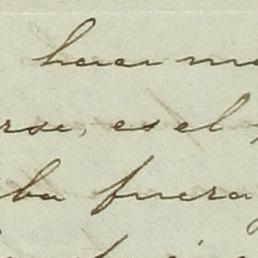 hacer m
rse, es el
ba fuera